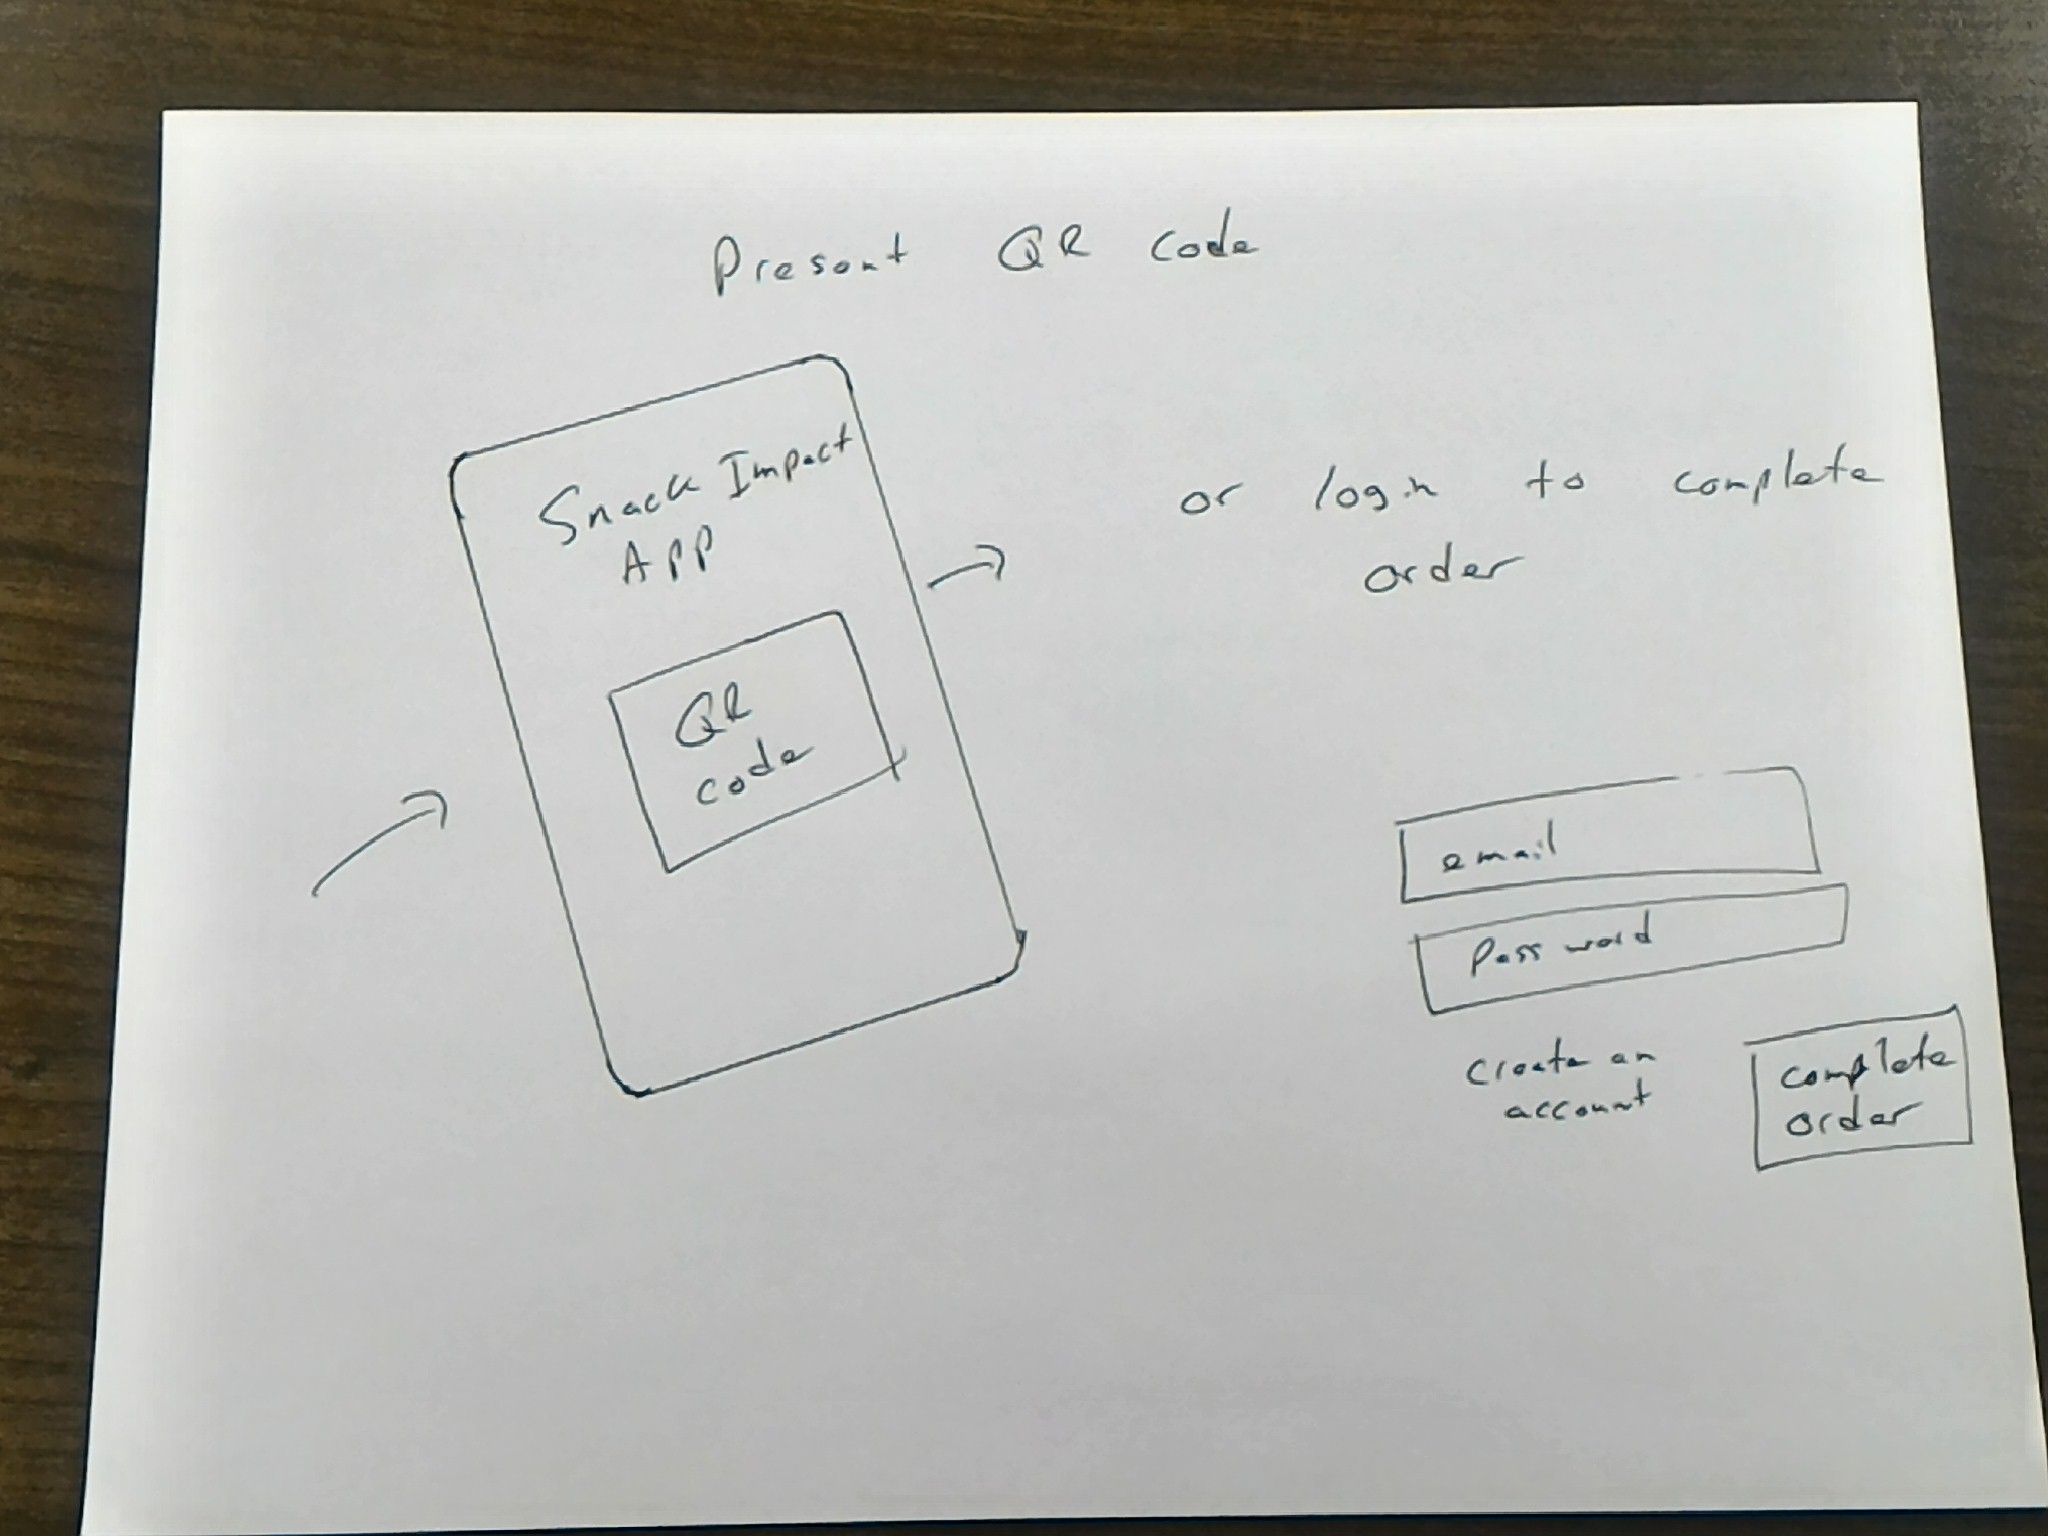 Present QR code
Snack Impact
App
QR
code
or login to complete
order
email
Password
create an
account
complete
order